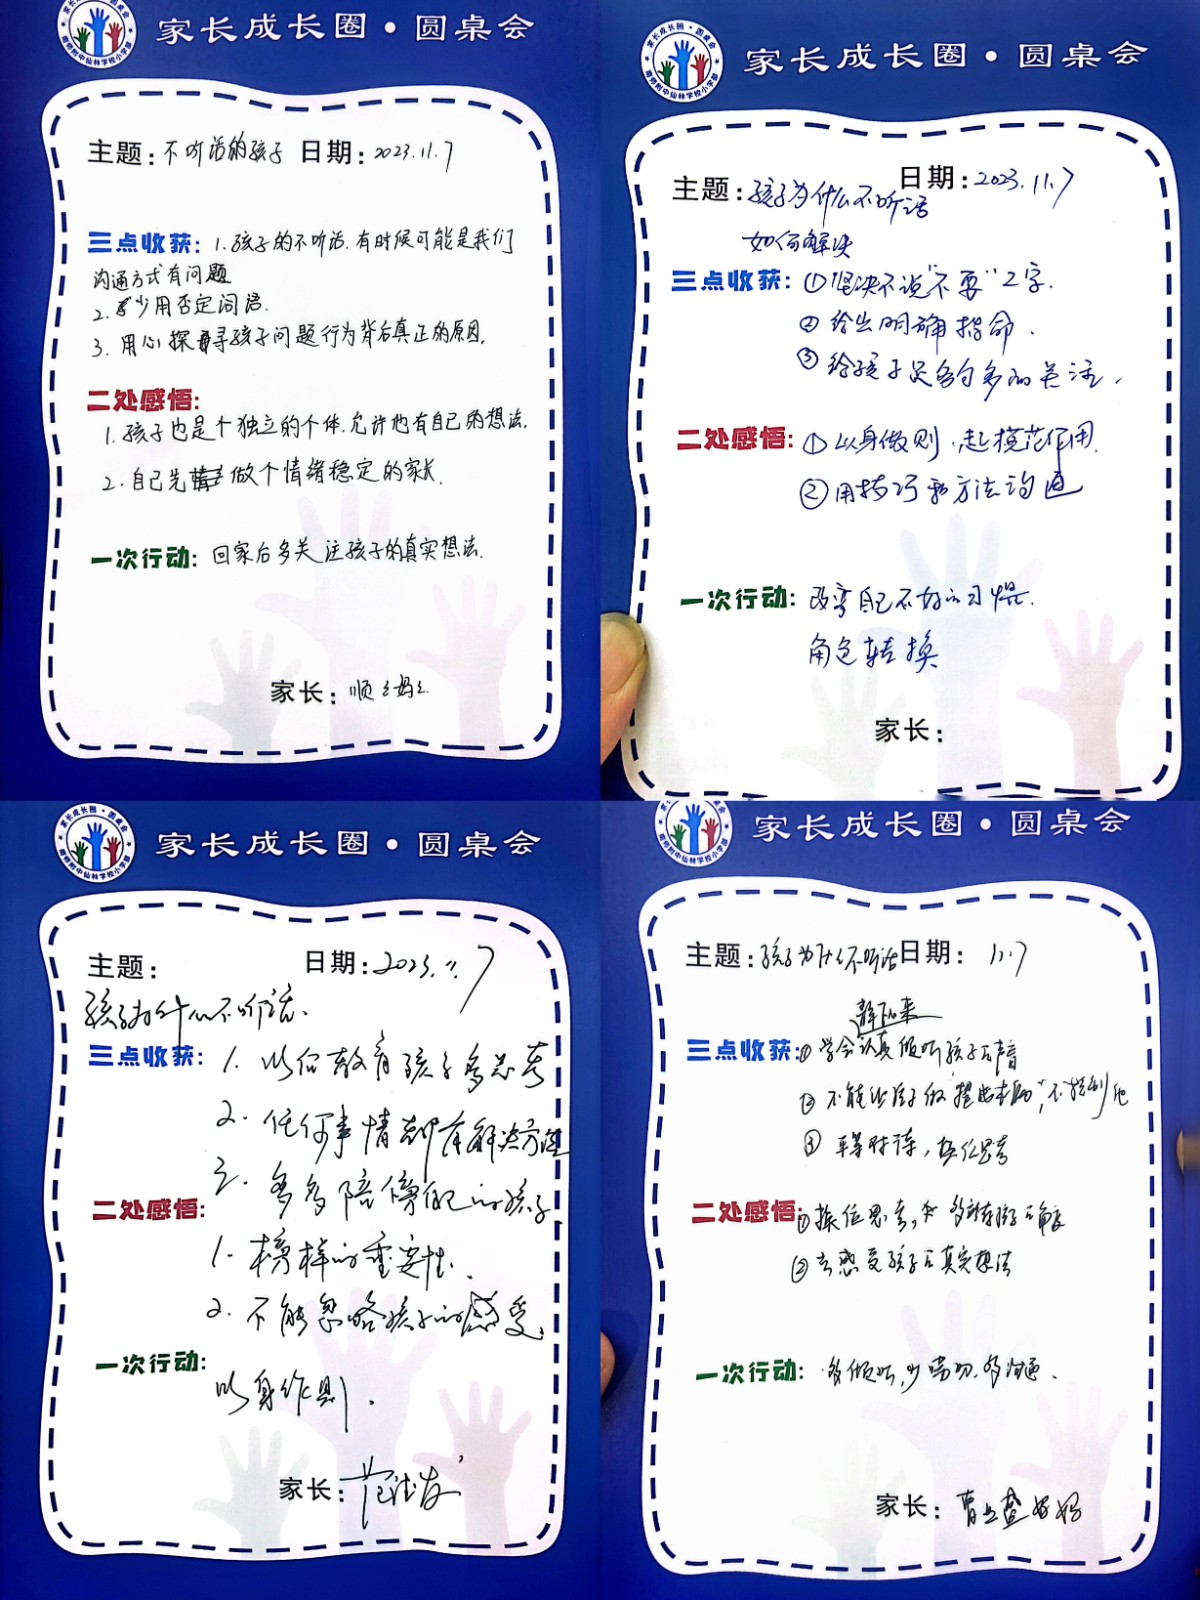 家长成长圈·圆桌会
主题：不听话的孩子 日期：2023.11.7
三点收获：1.孩子的不听话.有时候可能是我们
沟通方式有问题
2.少用否定词语.
3.用心探寻孩子问题行为背后真正的原因.
二处感悟：
1.孩子也是个独立的个体.允许他有自己的想法.
2.自己先做个情绪稳定的家长.
一次行动：回家后多关注孩子的真实想法.
家长：顺妈
家长成长圈·圆桌会
南师附中仙林学校小学部
日期：2023.11.7
主题：孩子为什么不听话
如何解决
三点收获：①坚决不说"不要"2字.
②给出明确指命.
③给孩子足够多的关注.
二处感悟：①以身做则.起模范作用.
②用技巧和方法沟通
一次行动：改变自己不好的习惯.
角色转换
家长：
家长成长圈·圆桌会
主题： 日期：2023.11.7
孩子为什么不听话.
三点收获：1.以何教育孩子多思考
2.任何事情都有解决方法
3.多多陪伴的孩子
二处感悟：
1.榜样的重要性.
2.不能忽略孩子的感受.
一次行动：
以身作则.
家长：范
家长成长圈·圆桌会
主题：孩子为什么不听话 日期： 11.7
静下心来
三点收获：①学会认真倾听孩子的声音
②不能让孩子做"提出本助",不控制他
③平等对待,换位思考
二处感悟：①换位思考,多孩子角度
②去感受孩子的真实想法
一次行动：多倾听,少,多沟通.
家长：曹妈妈